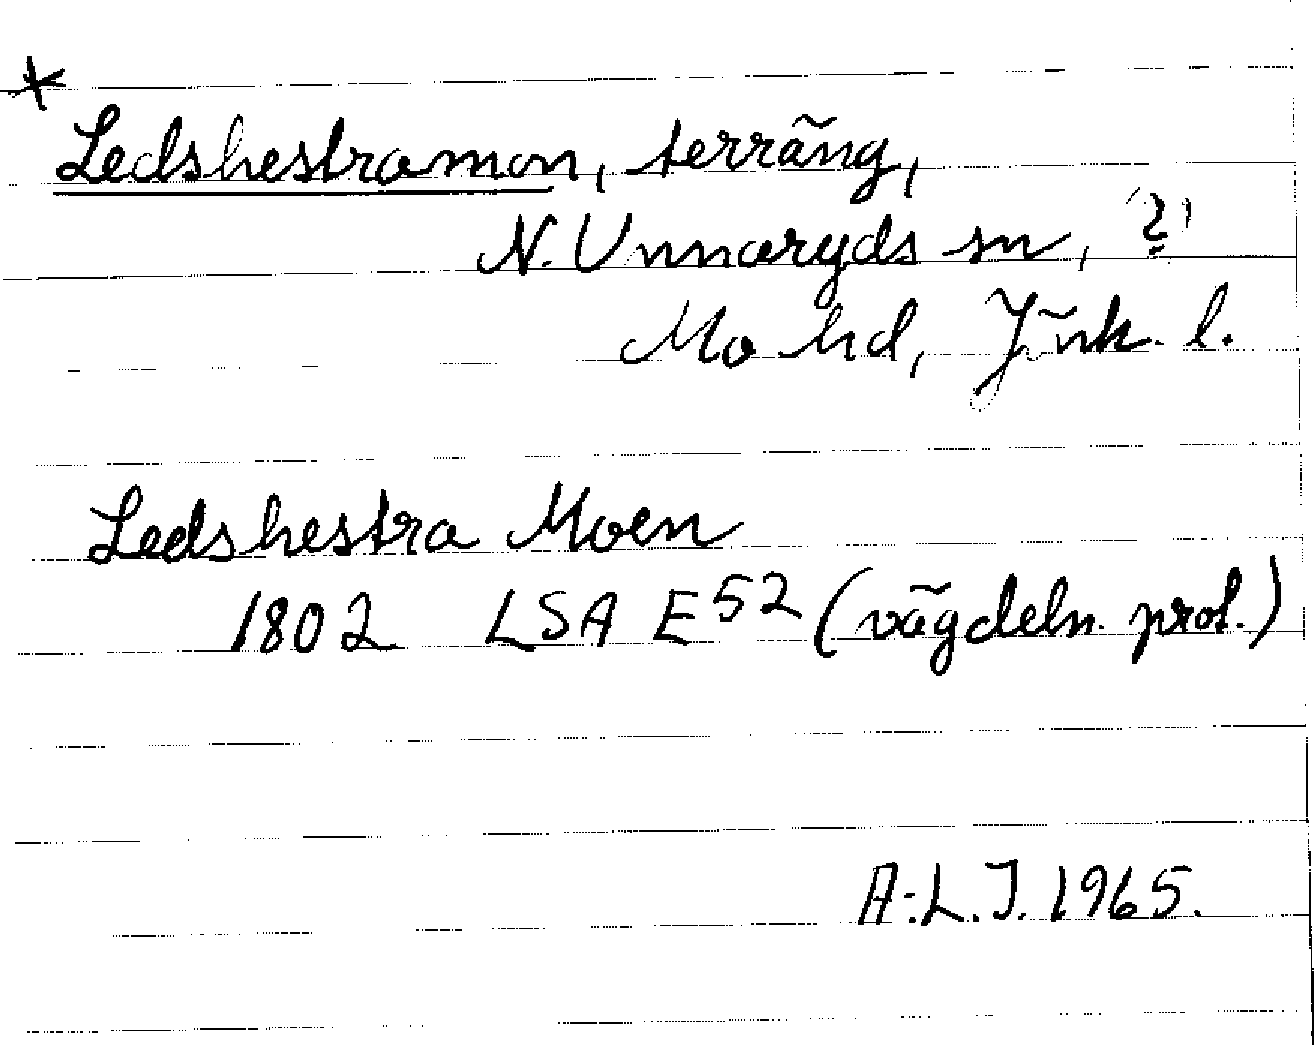 *
Ledshestramon, terräng,
N. Unnaryds sn, (?)
Mo hd, Jönk. l.
Ledshestra Moen
1802 LSA E52 (vägdeln. prot.)
A.L.J. 1965.